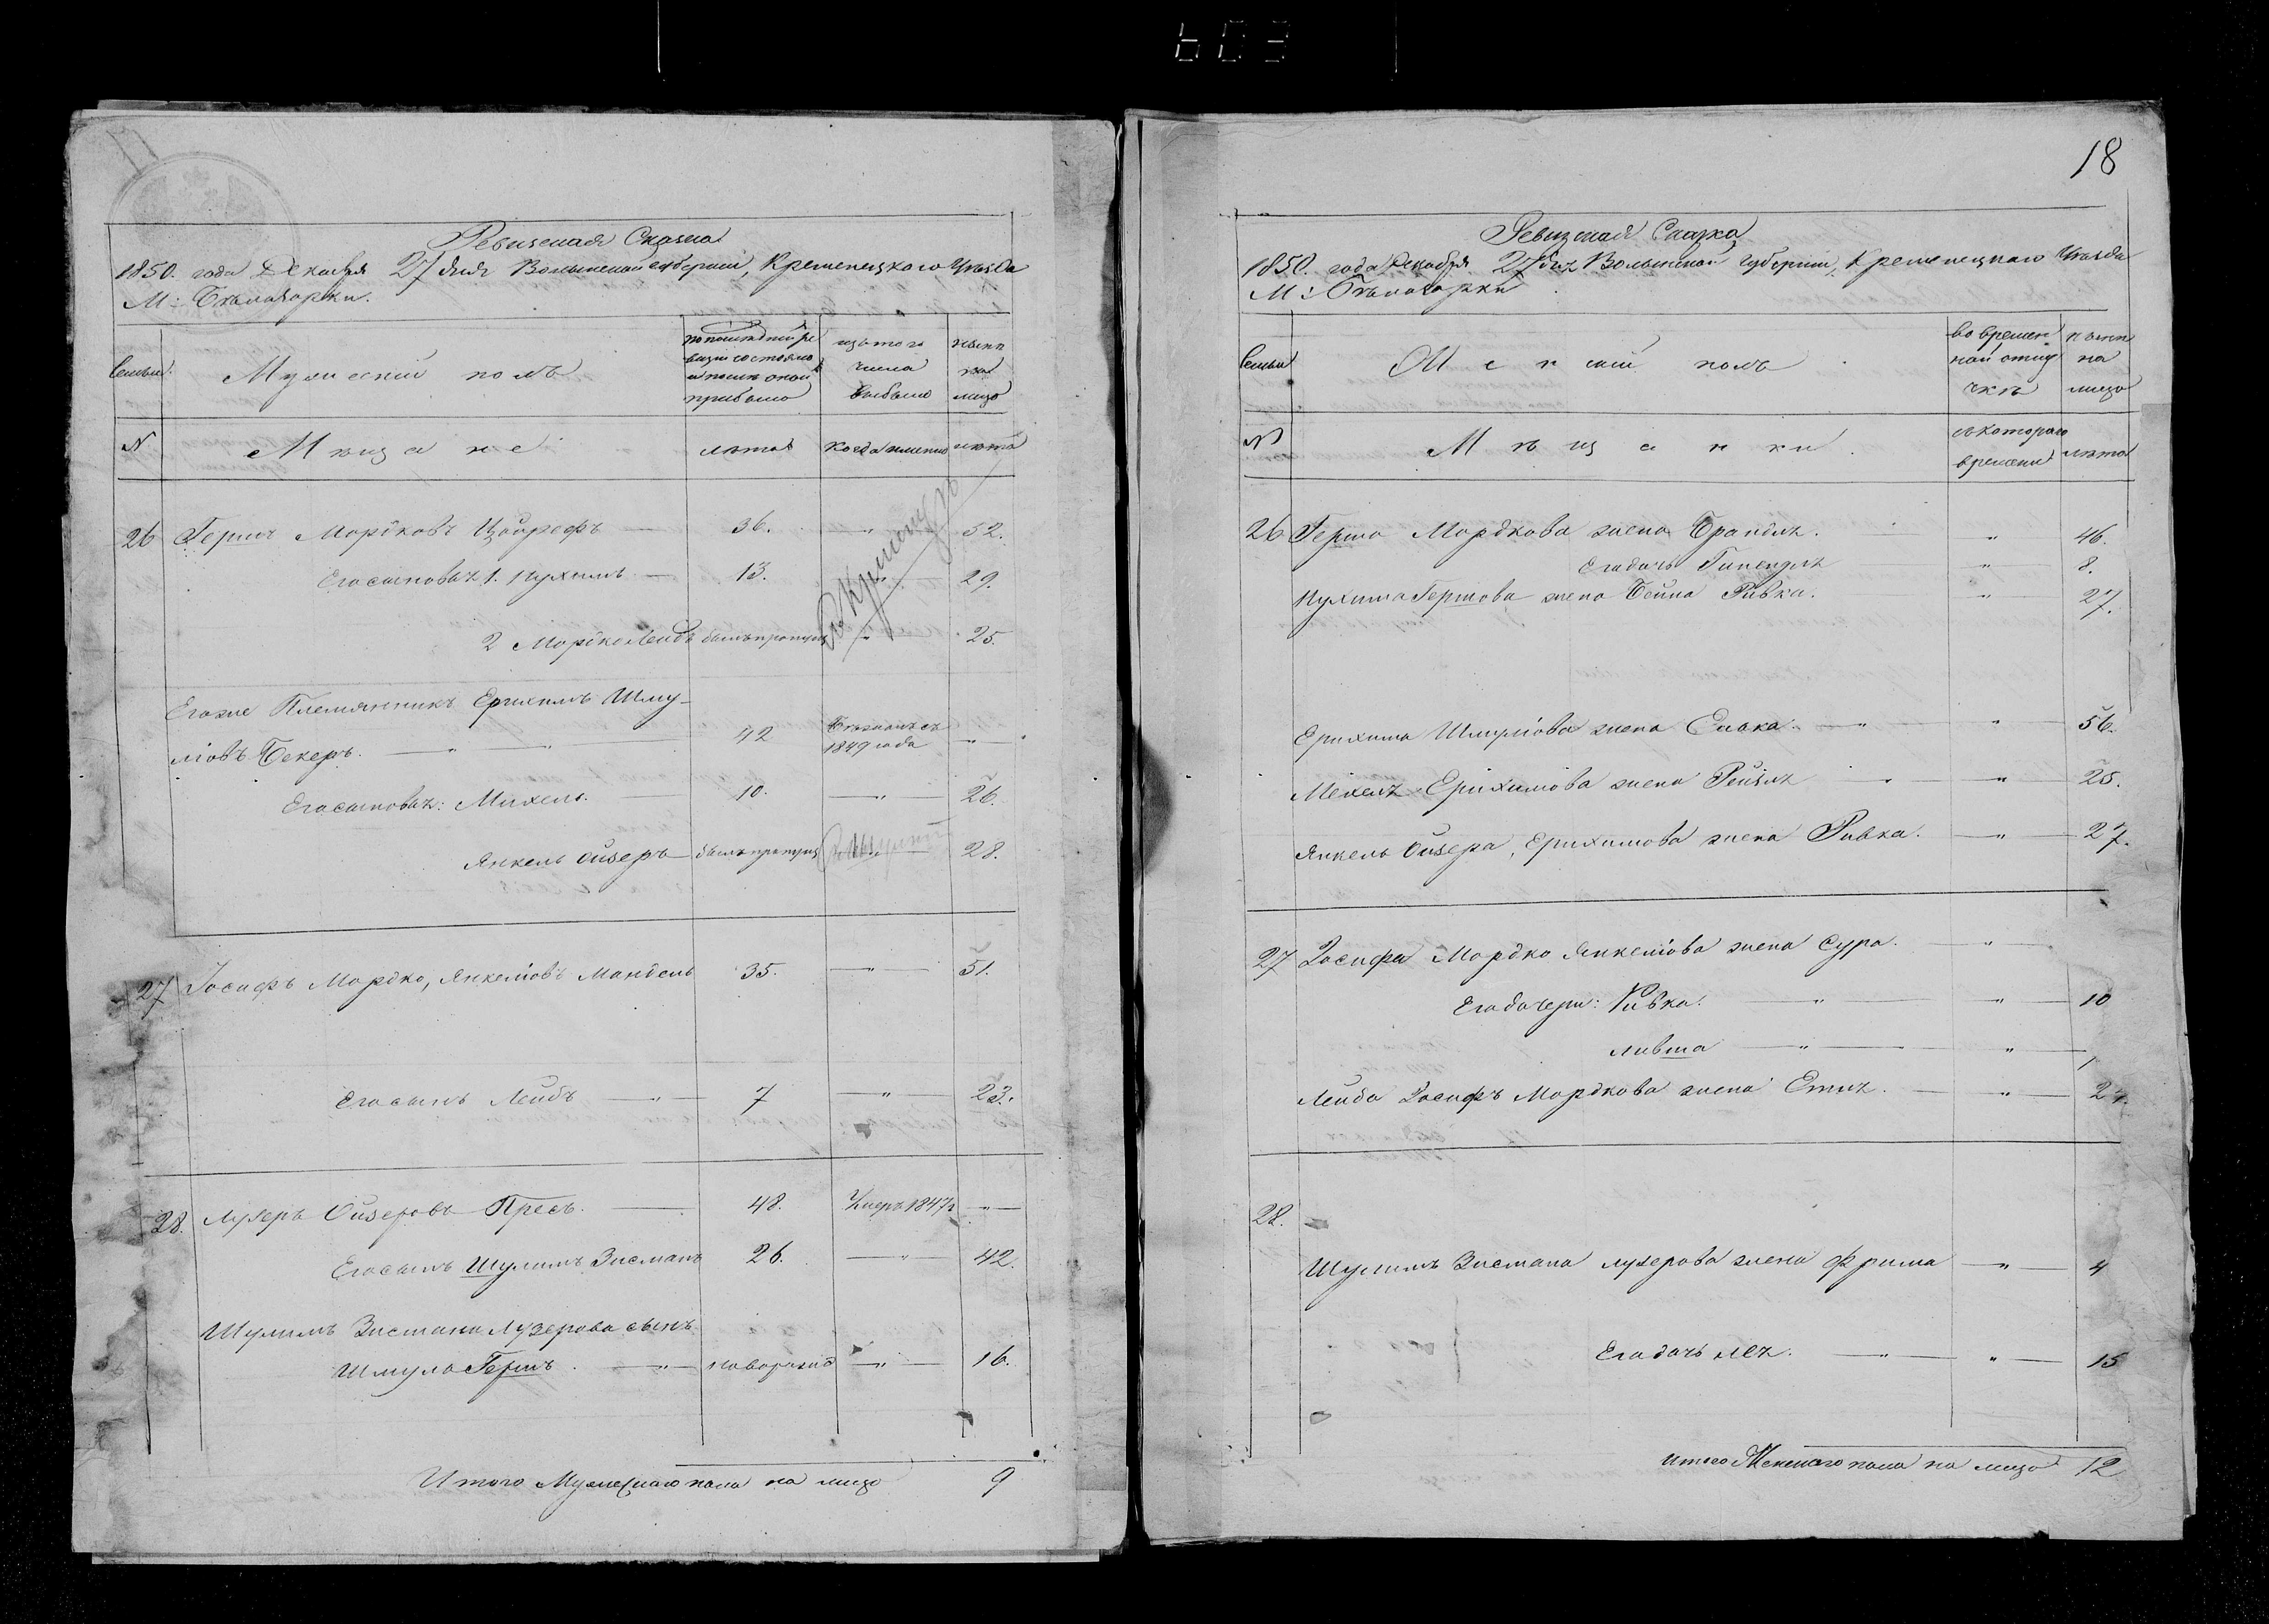 603
Ревизская Сказка
1850. года Декабря 27 дня Волынской губернии, Кременецкаго Уѣзда
М: Бѣлозорки.
Семьи.
Мужеский полъ
по последней ре
визии состояло
и после оной
прибыло
изъ того
числа
выбыло
нынѣ
на
лицо
N
Мѣщане
лѣта
когда именно
лѣта
26 Гершъ Мордковъ 36. " 52.
Его сыновья 1. Нухимъ 13. " 29.
2 Мордко Лейбъ былъ пропущ " 25.
Его же Племянникъ Ерихимъ Шму-
лiовъ Бекеръ. " " 42 1849 года "
Его сыновья: Михель. 10. " 26.
Янкель Ойзеръ былъ пропущ " 28.
27 Іосифъ Мордко, Янкелiовъ Мандель 35. " 51.
Его сынъ Лейбъ " 7 " 23.
28. Лузеръ Ойзеровъ Пресъ. 48. Умеръ 1847г "
Его сынъ Шулимъ Зисманъ 26. " 42.
Шулимъ Зисмана Лузерова сынъ
Шмуль Гершъ. " новорожд " 16.
Итого Мужескаго пола на лицо 9
18
Ревизская Сказка
1850. года Декабря 27 дня Волынской губернии, Кременецкаго Уѣзда
М: Бѣлозорки
Семьи
Женский полъ
во времен
ной отлу
чкѣ
нынѣ
на
лицо
N
Мѣщанки.
съ котораго
времени
лѣта
26 Герша Мордкова жена Брандля. " 46.
Его дочь " 8.
Нухима Гершова жена Бейла Ривка. " 27.
Ерихима Шмулiова жена " " 56.
Михеля Ерихимова жена Рейзля " " 25.
Янкель Ойзера, Ерихимова жена Ривка. " 27.
27 Іосифа Мордко Янкелiова жена Сура. "
Его дочери: Ривка. " " 10
Ливша " "
Лейба Іосифъ Мордкова жена Етля. "
28.
Шулимъ Зисмана Лузерова жена Фрима "
Его дочь Лея. " " 15
Итого Женскаго пола на лицо 12